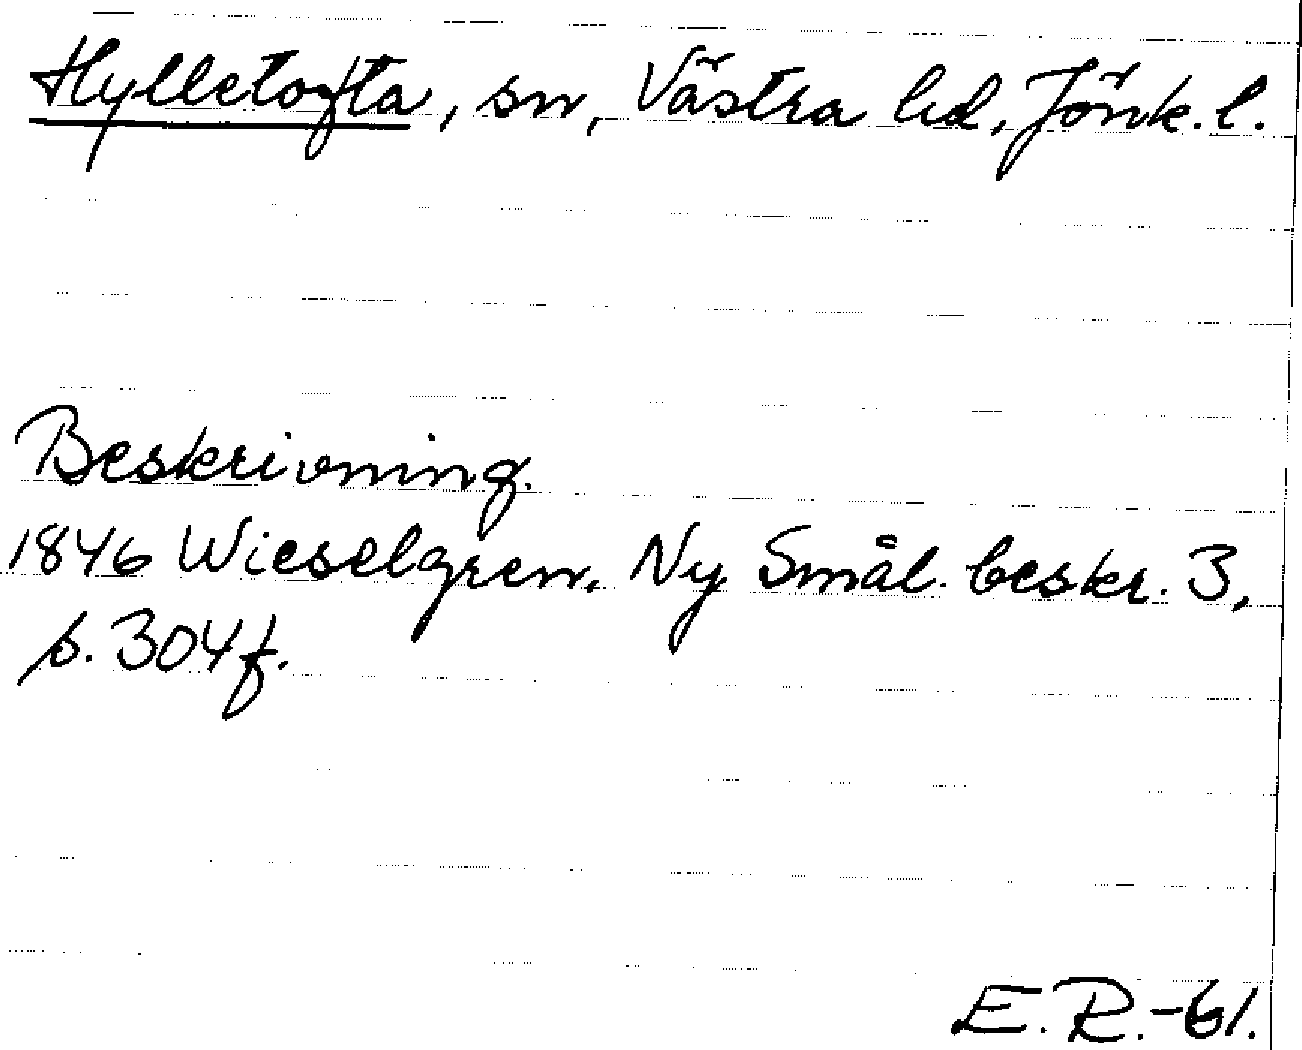 Hylletofta, sn, Västra hd, Jönk. l.
Beskrivning.
1846 Wieselgren. Ny Smål. beskr. 3,
s. 304 f.
E. R. -61.